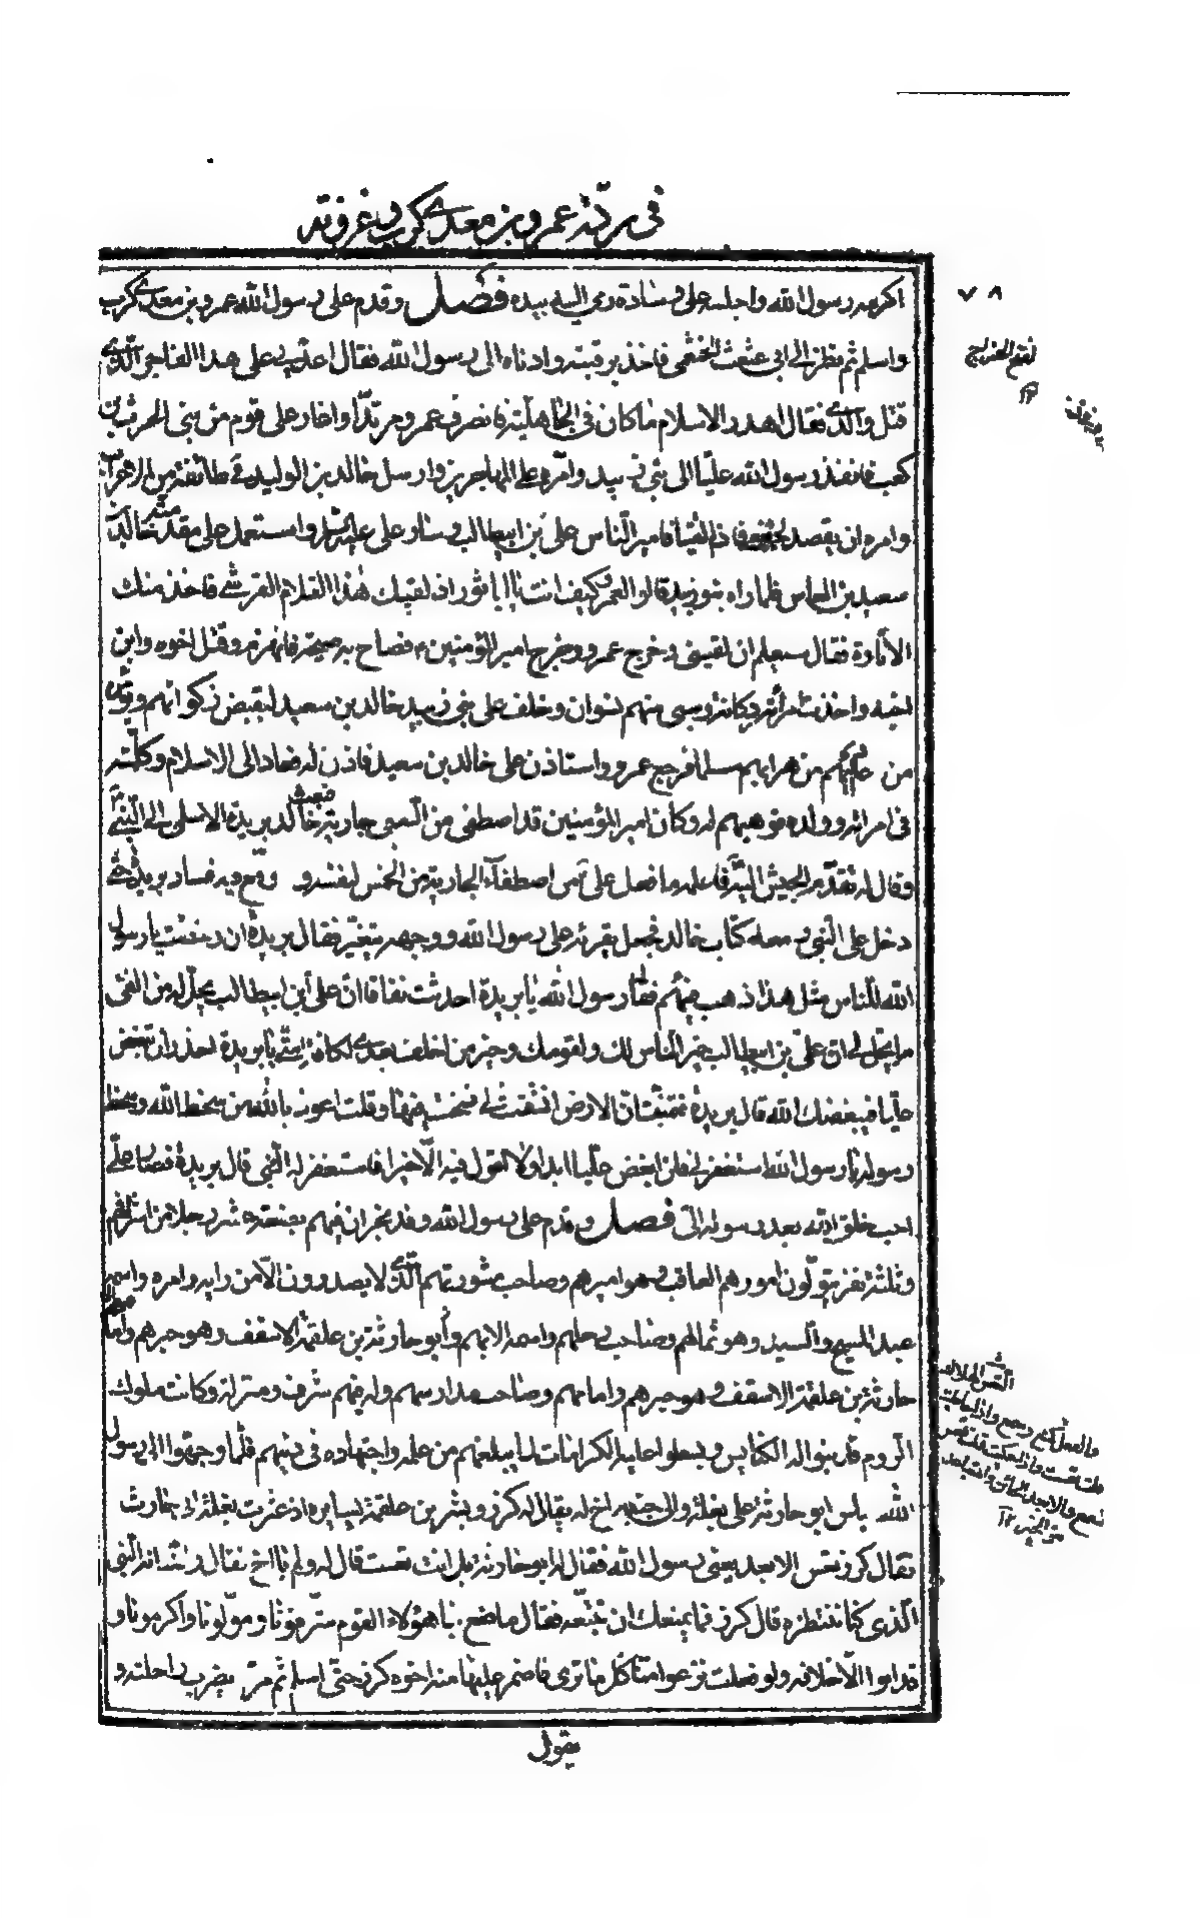 في ردّة عمرو بن معدي كرب وغزوته
٧٨
اكرمه رسول الله واجلسه على وسادة رمى اليه بيده فصل وقدم على رسول الله عمرو بن معدي كرب
واسلم ثم نظر الى ابي عثعث الخثعمي فاخذ برقبته وادناه الى رسول الله فقال اعدني على هذا الفاجر الذي
قتل والدي فقال اهدر الاسلام ما كان في الجاهلية فانصرف عمرو مرتدّا واغار على قوم من بني الحرث بن
كعب فانفذ رسول الله عليّا الى بني زبيد وامّره على المهاجرين وارسل خالد بن الوليد في طائفة من الاعراب
وامره ان يقصد الجعفي فاذا التقيا فامير الناس علي بن ابيطالب وسار علي واستعمل على مقدمته خالد بن
سعيد بن العاص فلما راه بنو زبيد قالوا لعمرو كيف انت يا ابا ثور اذا لقيك هذا الغلام القرشي فاخذ منك
الاتاوة فقال سيعلم ان لقيني وخرج عمرو وخرج امير المؤمنين ع فصاح به صيحة فانهزم وقتل اخوه وابن
اخيه واخذت امرأته ركانة وسبى منهم نسوان وخلف على بني زبيد خالد بن سعيد ليقبض زكواتهم ويؤمن
من عاد اليهم من هرابهم مسلما فرجع عمرو واستاذن على خالد بن سعيد فاذن له فعاد الى الاسلام وكلّمه
في امرأته وولده فوهبهم له وكان امير المؤمنين قد اصطفى من السبي جارية فبعث خالد بريدة الاسلمي الى النبي
وقال له تقدّم الجيش اليه فاعلمه ما فعل علي من اصطفاء الجارية من الخمس لنفسه و وقع فيه فسار بريدة حتى
دخل على النبي و معه كتاب خالد فجعل يقرئه على رسول الله ووجهه يتغيّر فقال بريدة ان رخصت يا رسول
الله للناس مثل هذا ذهب فيئهم فقال رسول الله يا بريدة احدثت نفاقا انّ علي بن ابيطالب يحلّ له من الفئ
ما يحل لي ان علي بن ابيطالب خير الناس لك ولقومك وخير من اخلف بعدي لكافة امتي يا بريدة احذر ان تبغض
عليا فيبغضك الله قال بريدة فتمنيت ان الارض انشقت لي فسخت فيها وقلت اعوذ بالله من سخط الله وسخط
رسوله يا رسول الله استغفر لي فلن ابغض عليّا ابدا ولا اقول فيه الّا خيرا فاستغفر له النبي قال بريدة فصار علي
احب خلق الله بعد رسوله اليّ فصل وقدم على رسول الله وفد نجران فيهم بضعة عشر رجلا من اشرافهم
وثلثة نفر يتولّون امورهم العاقب وهو اميرهم وصاحب مشورتهم الذي لا يصدرون الّا عن رايه وامره واسمه
عبد المسيح والسيد وهو ثمالهم وصاحب رحلهم واسمه الايهم وأبو حارثة بن علقمة الاسقف وهو حبرهم وامامهم
حارثة بن علقمة الاسقف وهو حبرهم وامامهم وصاحب مدارسهم وله فيهم شرف ومنزلة وكانت ملوك
الروم قد بنوا له الكنايس وبسطوا عليه الكرامات لما يبلغهم من علمه واجتهاده في دينهم فلمّا وجهوا الى رسول
الله جلس ابو حارثة على بغلة والى جنبه اخ له يقال له كرز وبشر بن علقمة يسايره اذ عثرت بغلة ابي حارثة
فقال كرز تعس الابعد يعني رسول الله فقال له ابو حارثة بل انت تعست قال له ولم يا اخ فقال والله انه النبي
الذي كنا ننتظره قال كرز فما يمنعك ان تتبعه فقال ما صنع بنا هؤلاء القوم شرّفونا وموّلونا واكرمونا و
قد ابوا الّا خلافه ولو فعلت نزعوا منّا كل ما ترى فاضمر عليها منه اخوه كرز حتى اسلم ثم مرّ يضرب راحلته و
يقول